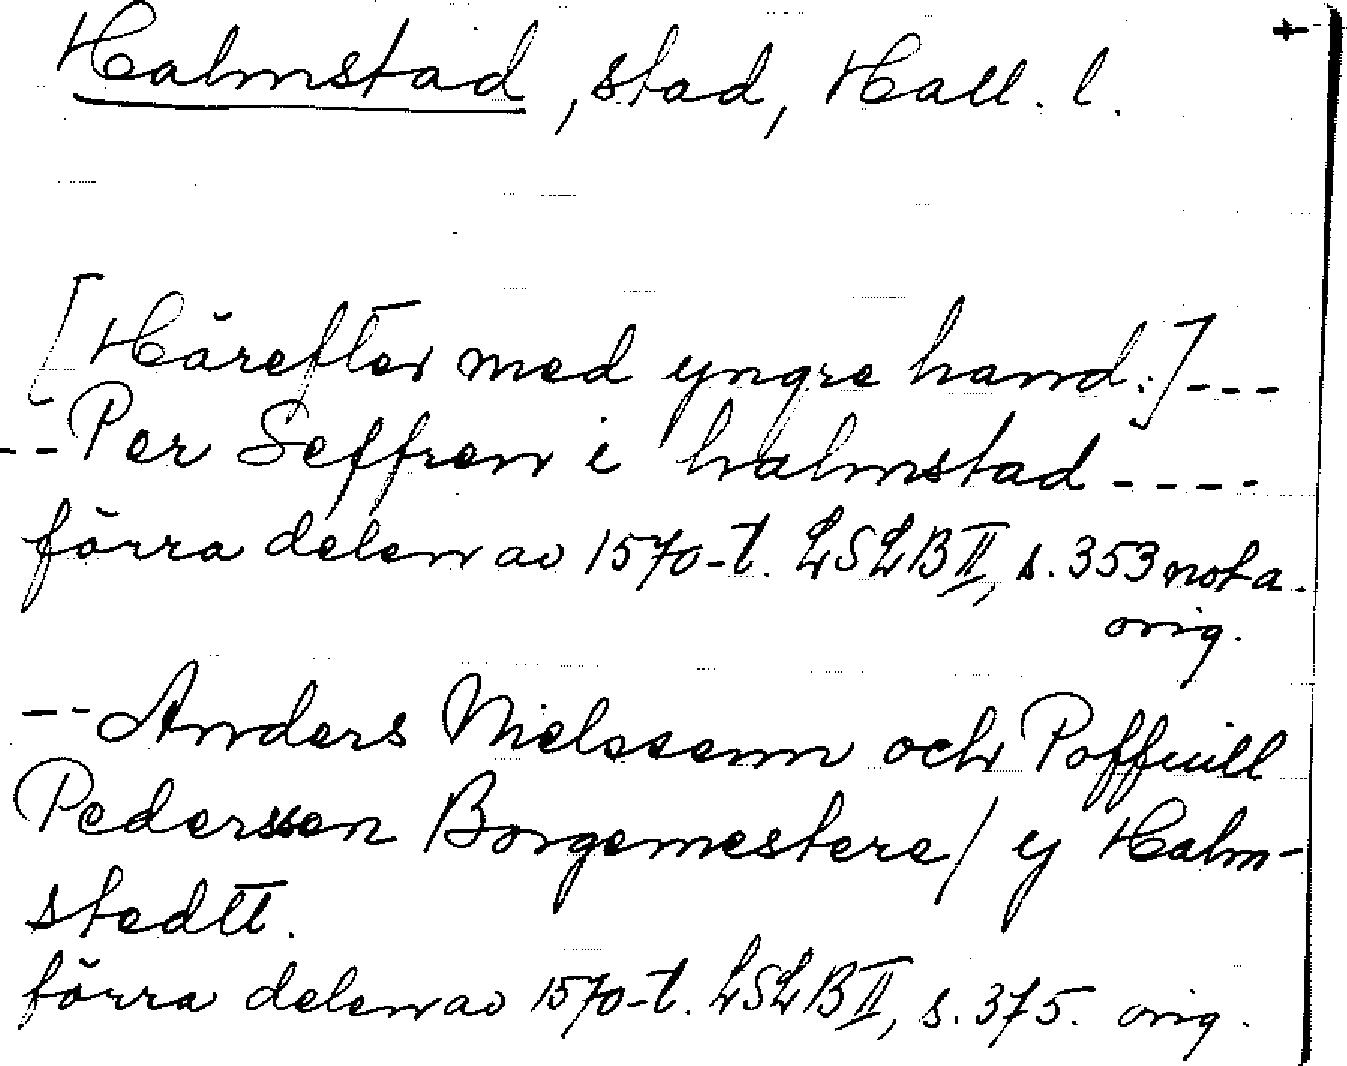 Halmstad, stad, Hall. l. +
[Härefter med yngre hand:] ---
-- Per Seffren i halmstad ----
förra delen av 1570-t. LSLB II, s. 353 nota.
orig.
-- Anders Nielssenn och Poffuill
Pederssen Borgemestere / y Halm-
stedtt.
förra delen av 1570-t. LSLB II, s. 375. orig.